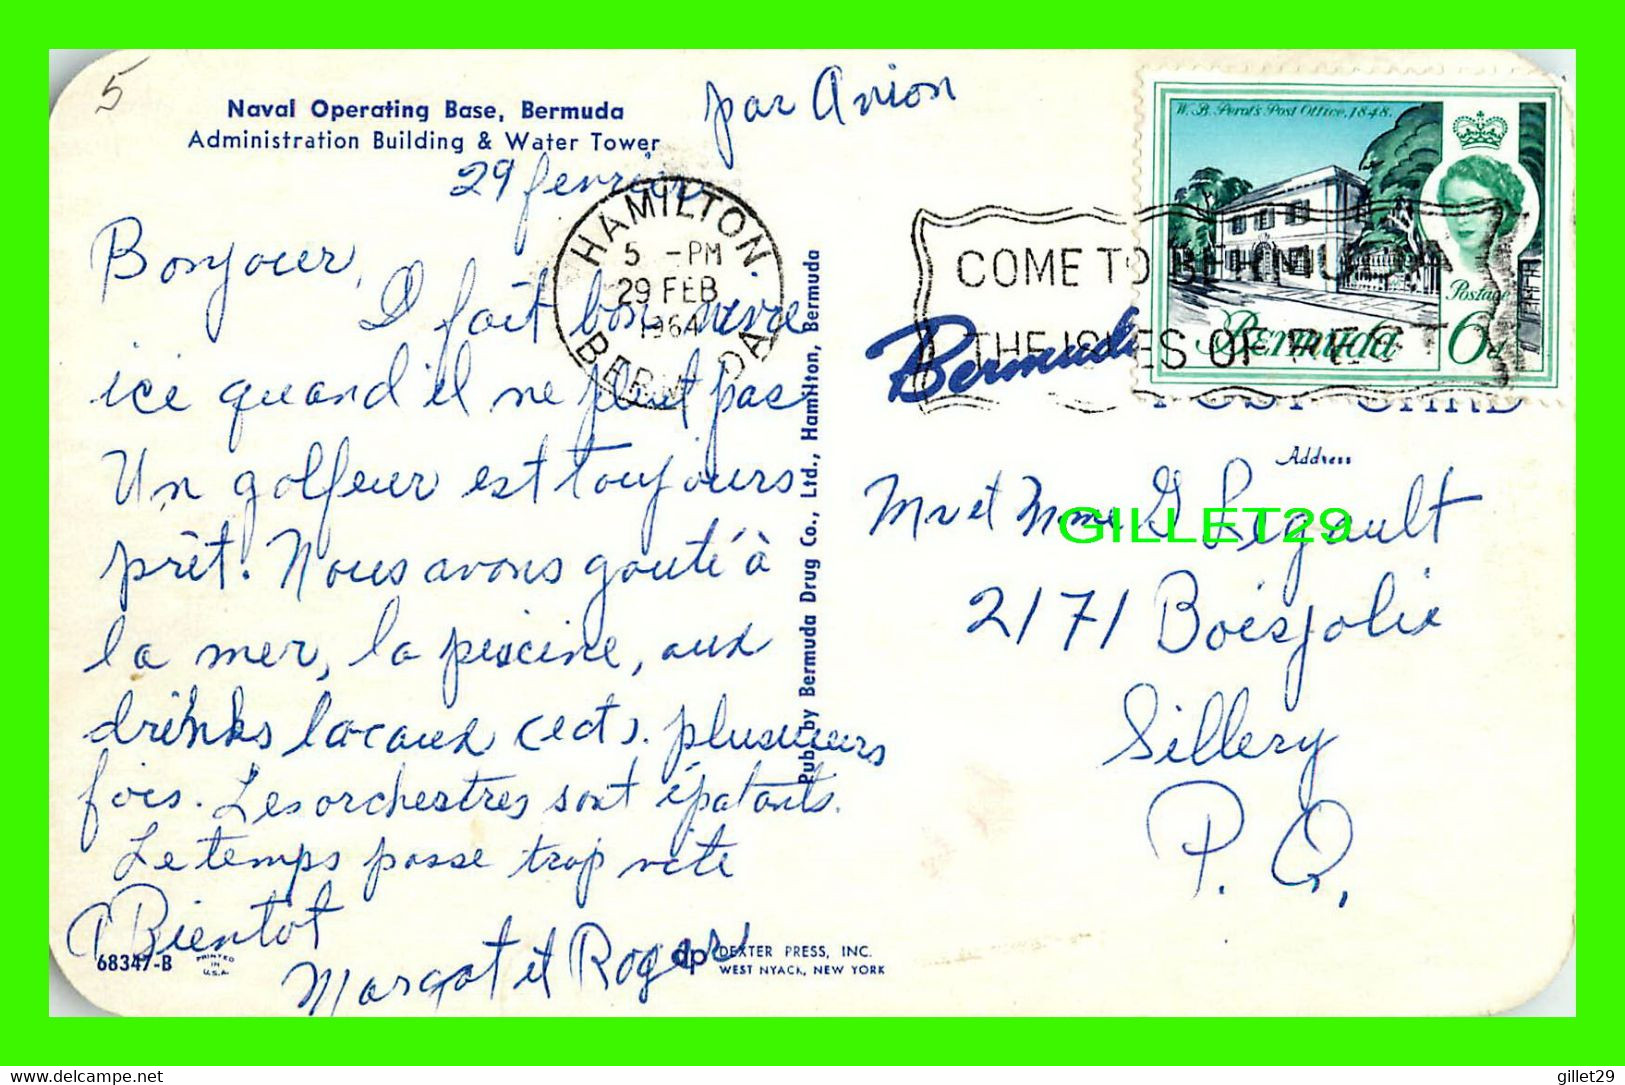 5
Naval Operating Base, Bermuda
Administration Building & Water Tower
par Avion
29 fevrier
Bonjour,
Il fait bon vivre
ici quand il ne pleut pas
Un golfeur est toujours
prêt. Nous avons gouté à
la mer, la piscine, aux
drinks locaux (ect). plusieurs
fois. Les orchestres sont épatants.
Le temps passe trop vite
A Bientot
Margot et Roger
68347-B
PRINTED
IN
U.S.A.
dp
DEXTER PRESS, INC.
WEST NYACK, NEW YORK
HAMILTON.
5 -PM
29 FEB
1964
BERMUDA
Pub. by Bermuda Drug Co., Ltd., Hamilton, Bermuda
COME TO BERMUDA
THE ISLES OF REST
W. B. Perot's Post Office, 1848.
Postage
Bermuda
6d
Bermuda
POST CARD
Address
Mr et Mme G Legault
2171 Boisjolie
Sillery
P. Q.
GILLET29
gillet29
https://www.delcampe.net